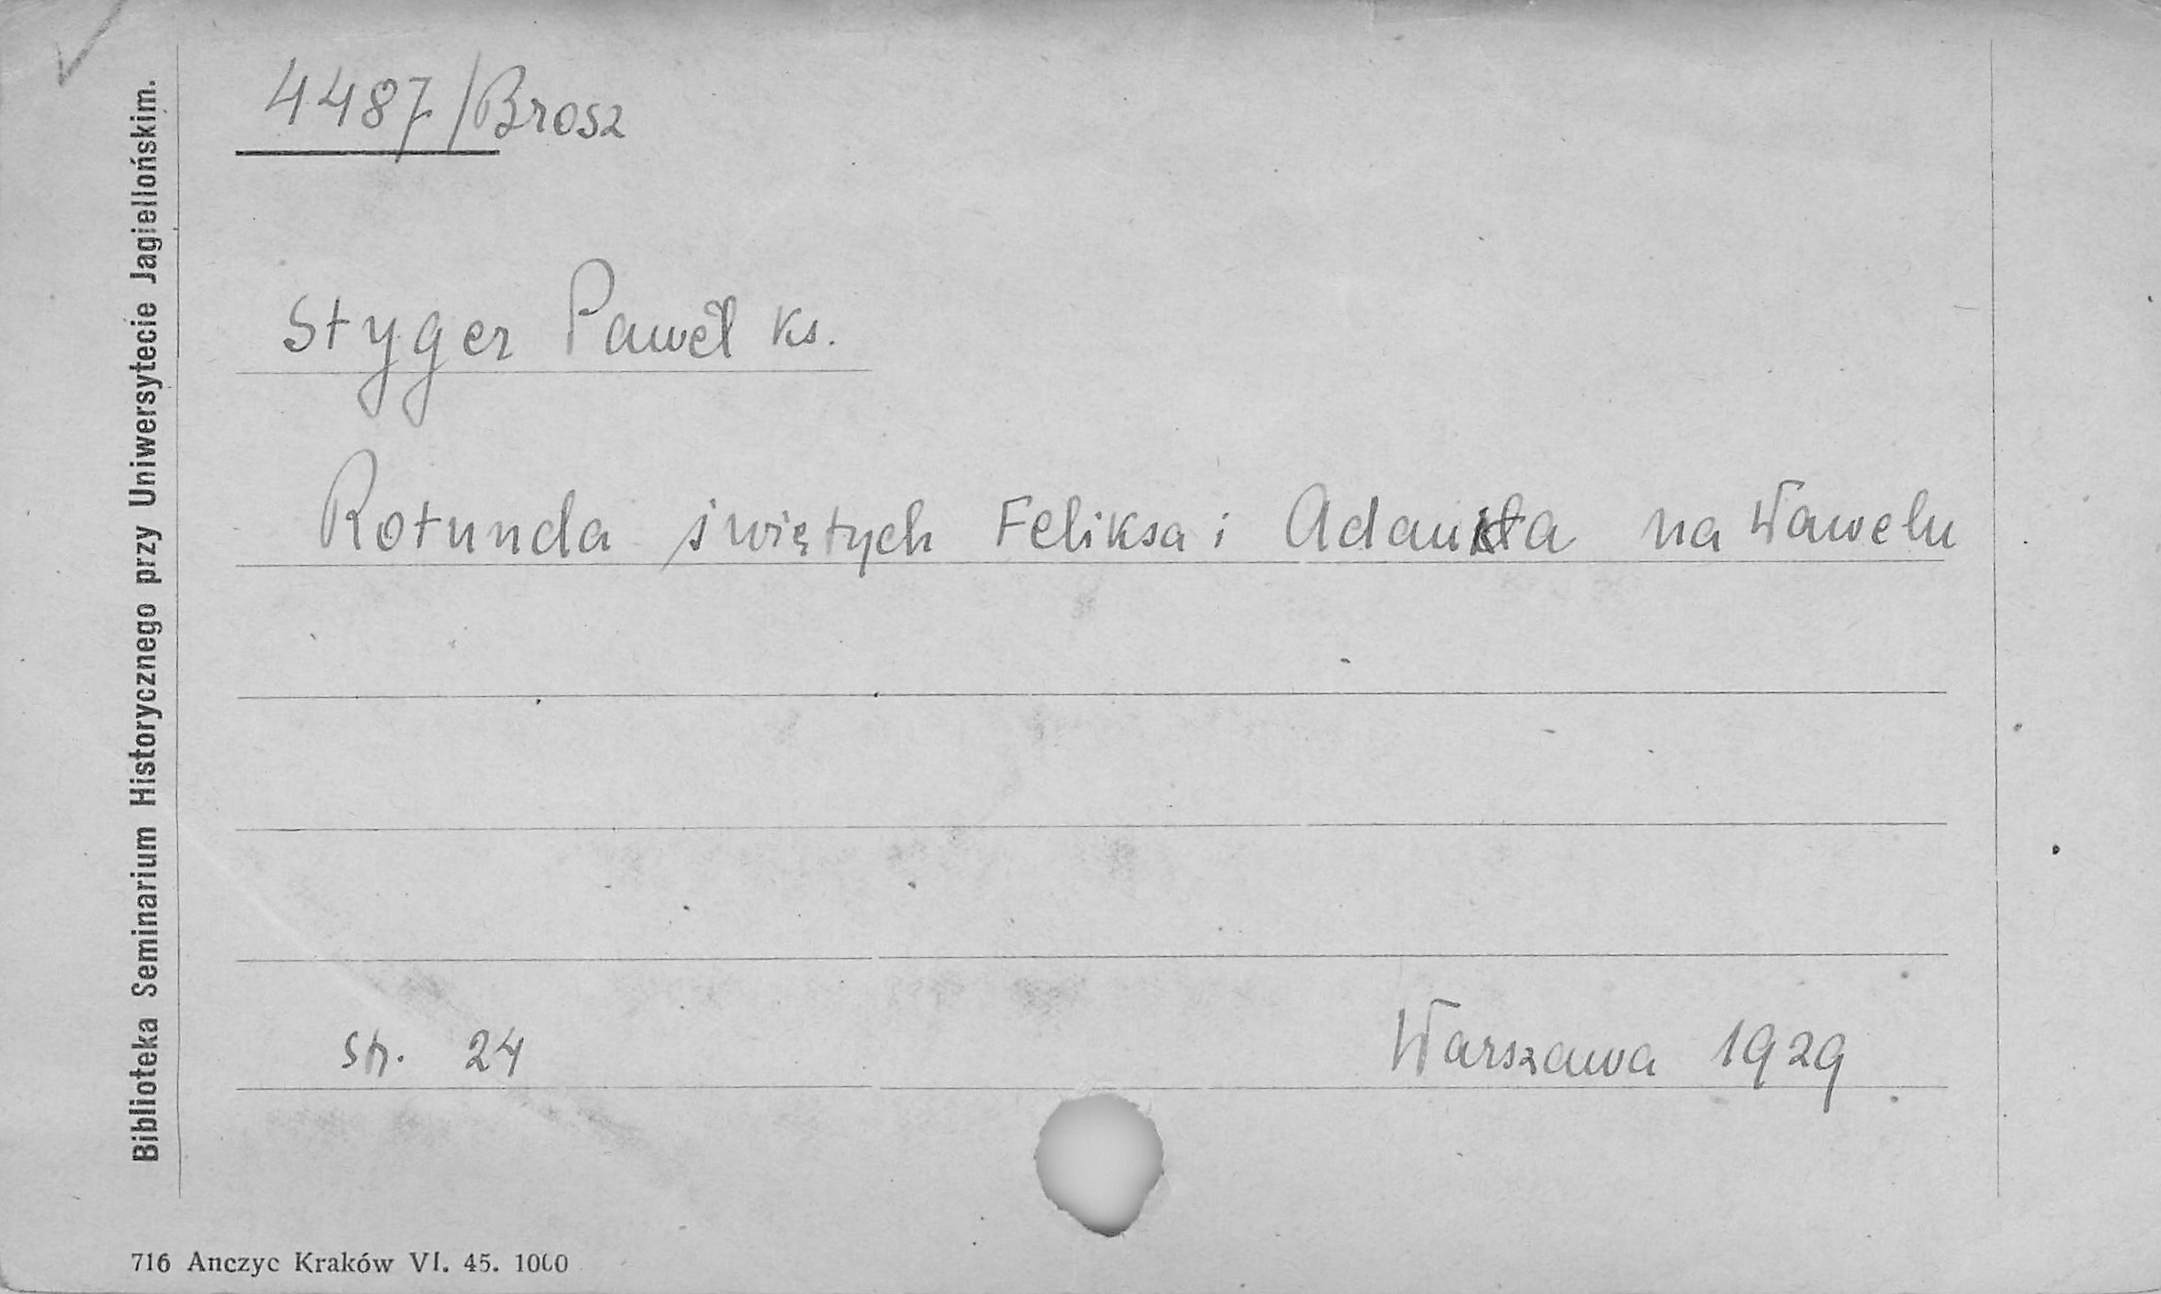 4487/Brosz
Styger Paweł ks.
Rotunda świętych Feliksa i Adaukta na Wawelu
str. 24
Warszawa 1929
Biblioteka Seminarium Historycznego przy Uniwersytecie Jagiellońskim.
716 Anczyc Kraków VI. 45. 1000